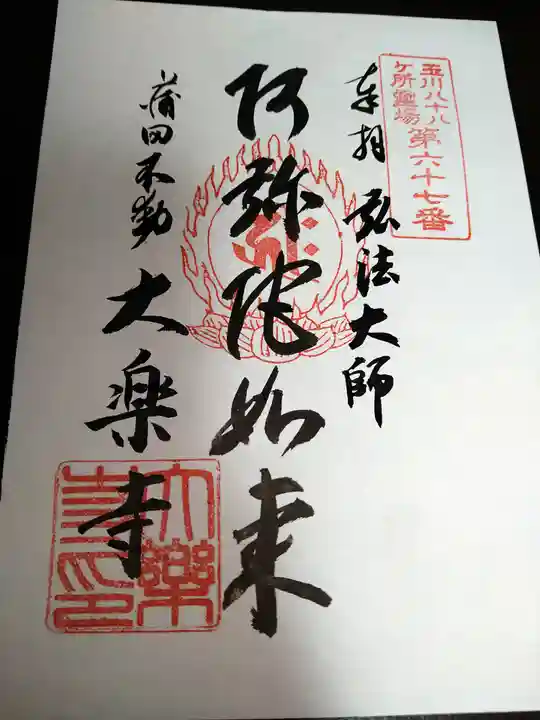 玉川八十八
ケ所霊場
第六十七番
奉拝 弘法大師
阿弥陀如来
蒲田不動 大楽寺
大樂
寺印